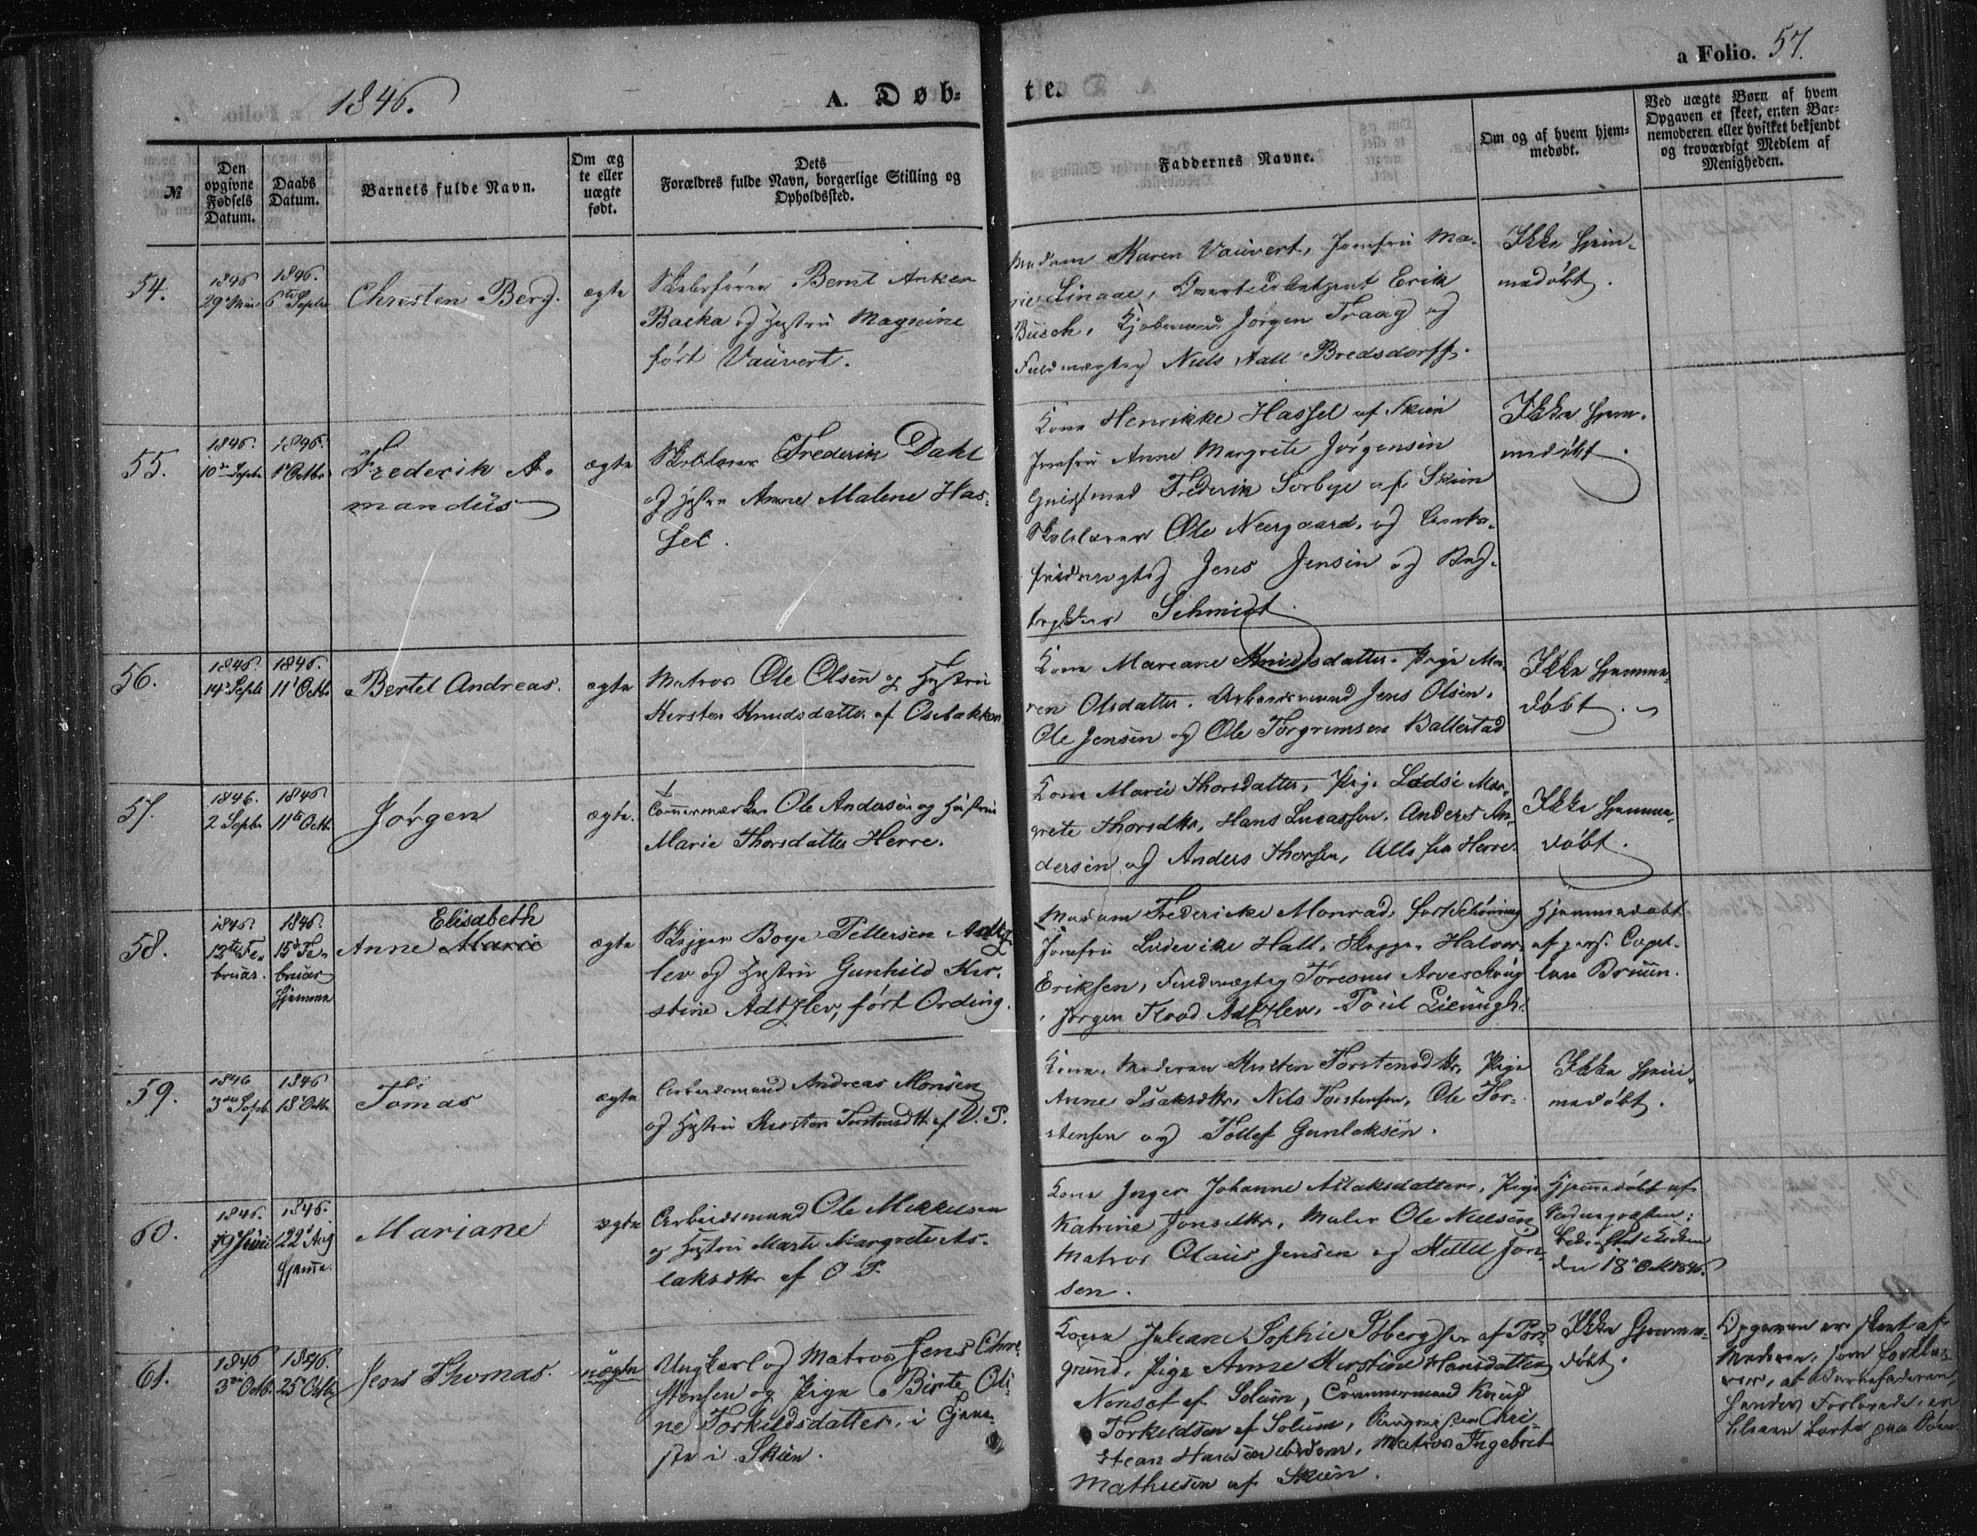 1846.
A. Døb-
te.
a Folio. 57.
№
Den opgivne Fødsels Datum.
Daabs Datum.
Barnets fulde Navn.
Om æg te eller uægte født.
Dets
Forældres fulde Navn, borgerlige Stilling og
Opholdssted.
Faddernes Navne.
Om og af hvem hjem-
medøbt.
Ved uægte Børn af hvem
Opgaven er skeet, enten Bar-
nemoderen eller hvilket bekjendt
og troværdigt Medlem af
Menigheden.
54.
1846
29
1846.
6te Septbr
Christen Berg.
ægte
Bernt Anker
Backa og Hustru Maguine
født Vauvert.
Madam Karen Vauvert, Jomfru Ma-
rie Linaae, Erik
Busch, Kjøbmand Jørgen Fraag og
Fuldmægtig Niels Aall Bredsdorff.
Ikke hjem-
medøbt.
55.
1846.
10de Septbr
1846.
1 Octbr
Frederik A-
mandus
ægte
Skolelærer Frederik Dahl
og Hustru Anne Malene Has-
sel.
Kone Henrikke Hassel af Skien
Jomfru Anne Margrete Jørgensen
Frederik Sorbye af Skien
Skolelærer Ole Neergaard, og
Jens Jensen og
Schmidt.
Ikke hjem-
medøbt.
56.
1846.
14de Septbr
1846.
11 Octbr
Bertel Andreas.
ægte
Matros Ole Olsen og Hustru
Kirsten Knudsdatter af Osebakken
Kone Mariane Knudsdatter. Pige Ma-
ren Olsdatter. Arbeidsmand Jens Olsen.
Ole Jensen og Ole Torgrimsen Ballestad
Ikke hjemme-
døbt.
57.
1846.
2 Septbr
1846
11te Octbr
Jørgen
ægte.
Ole Andersen og Hustru
Marie Thorsdatter Herre.
Kone Marie Thorsdatter, Pige Ladsi Mar-
grete Thorsdtr, Hans Lucassen, Anders An-
dersen og Anders Thorsen, Alle fra Herre.
Ikke hjemme-
døbt.
58.
1846.
12te Fe-
bruar.
1846.
15de Fe-
bruar
hjemme
Elisabeth
Anne Marie
ægte
Skipper Boye Pettersen Adtz-
lev og Hustru Gunhild Kir-
stine Adtzlev, født Ording.
Madam Fredericke Monrad, født Schøning
Jomfru Ludevike Hall, Skipper Halvor
Eriksen, Fuldmægtig
Jørgen Flood Adtzlev,
Hjemmedøbt
af pers. Capel-
lan Bruun.
59.
1846
3die Septb.
1846
18 Octbr
Tomas
ægte
Arbeidsmand Andreas Monsen
og Hustru Kirsten Torstensdtr af V. P.
Kone, Moderen Kirsten Torstensdtr, Pige
Anne Isaksdtr, Nils Torstensen, Ole Tor-
stensen og Tollef Gunleksen.
Ikke hjem-
medøbt.
60.
1846.
19 Juni
1846.
22 Aug
hjemme.
Mariane
ægte
Arbeidsmand Ole Mikkelsen
og Hustru Marte Margrete As-
laksdtr af O P.
Kone Inger Johanne Aslaksdatter, Pige
Katrine Jonsdtr. Maler Ole Nielsen
Matros Olaus Jensen og Kittel Jon-
sen.
Hjemmedøbt af
den 18de Oct 1846.
61.
1846
3die Octb.
1846.
25 Octbr
Jens Thomas.
uægte
Ungkarl og Matros Jens Chri-
stensen og Pige Birte Oli-
ne Torkildsdatter, i Tjene-
ste i Skien.
Kone Juliane Sophie Isbergsen af Pors-
grund, Pige Anne Kirstine Hansdatter
Nenset af Solum, Knud
Torkildsen af Solum, Chri-
stian Hansen Matros Ingebret
Mathiesen af Skien.
Ikke hjemme-
døbt.
Opgaven er skeet af
Moderen, som
at Barnefaderen,